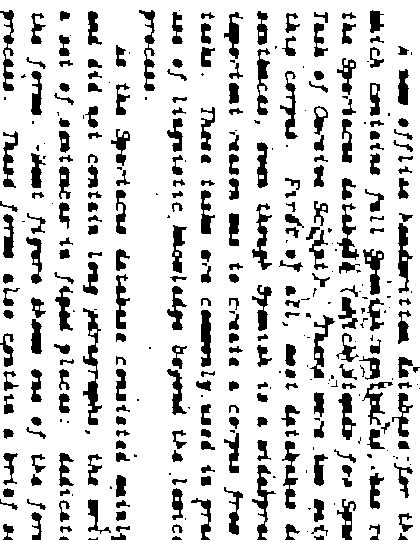 A new offline handwritten database for the
which contains full Spanish sentences, has re
the Spartacus database (which stands for Spa
Task of Cursive Script). There were two mai
this corpus. First of all, most databases do
sentences, even though Spanish is a widespre
important reason was to create a corpus from
tasks. These tasks are commonly used in prac
use of linguistic knowledge beyond the lexico
process.
As the Spartacus database consisted mainly
and did not contain long paragraphs, the wri
a set of sentences in fixed places: dedicate
the forms. Next figure shows one of the form
process. These forms also contain a brief se